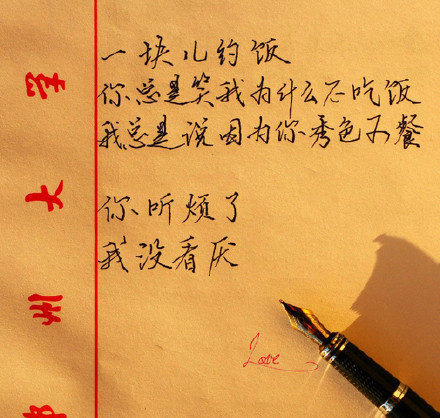 一块儿约饭
你总是笑我为什么不吃饭
我总是说因为你秀色可餐
你听烦了
我没看厌
Love
州大学